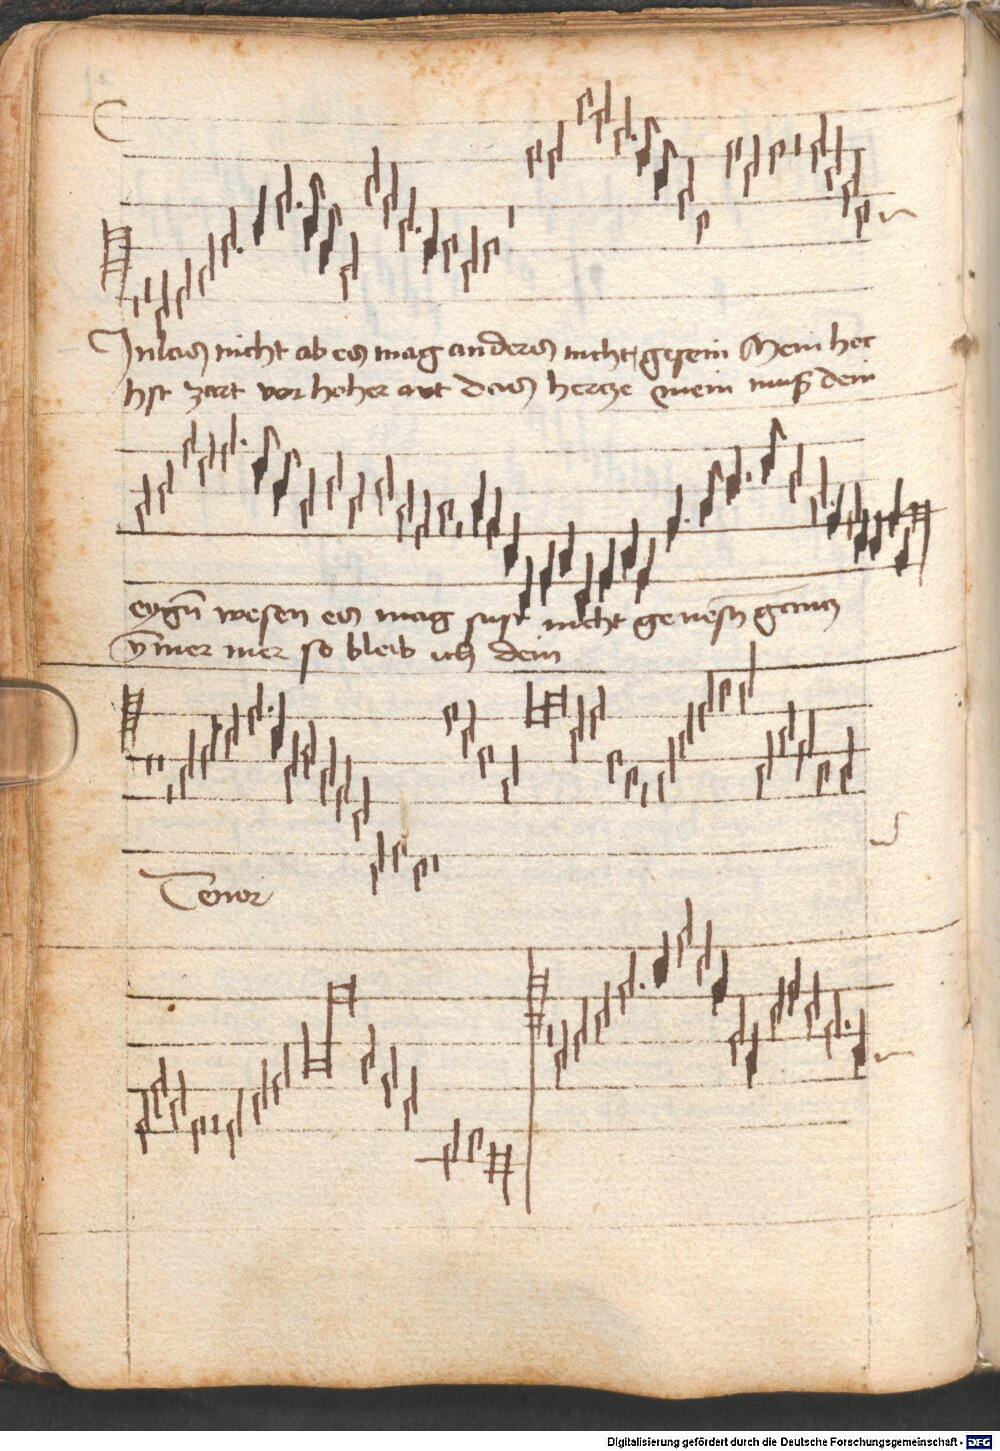 Inlas nicht ab es mag anders nicht gesein Mein hoe
hst zart vor hoher art das hercze mein mus dein
eygn̄ wesen es mag sust nicht genesn̄ gancz
ȳmer mer so bleib ich dein
Tenor
Digitalisierung gefördert durch die Deutsche Forschungsgemeinschaft - DFG